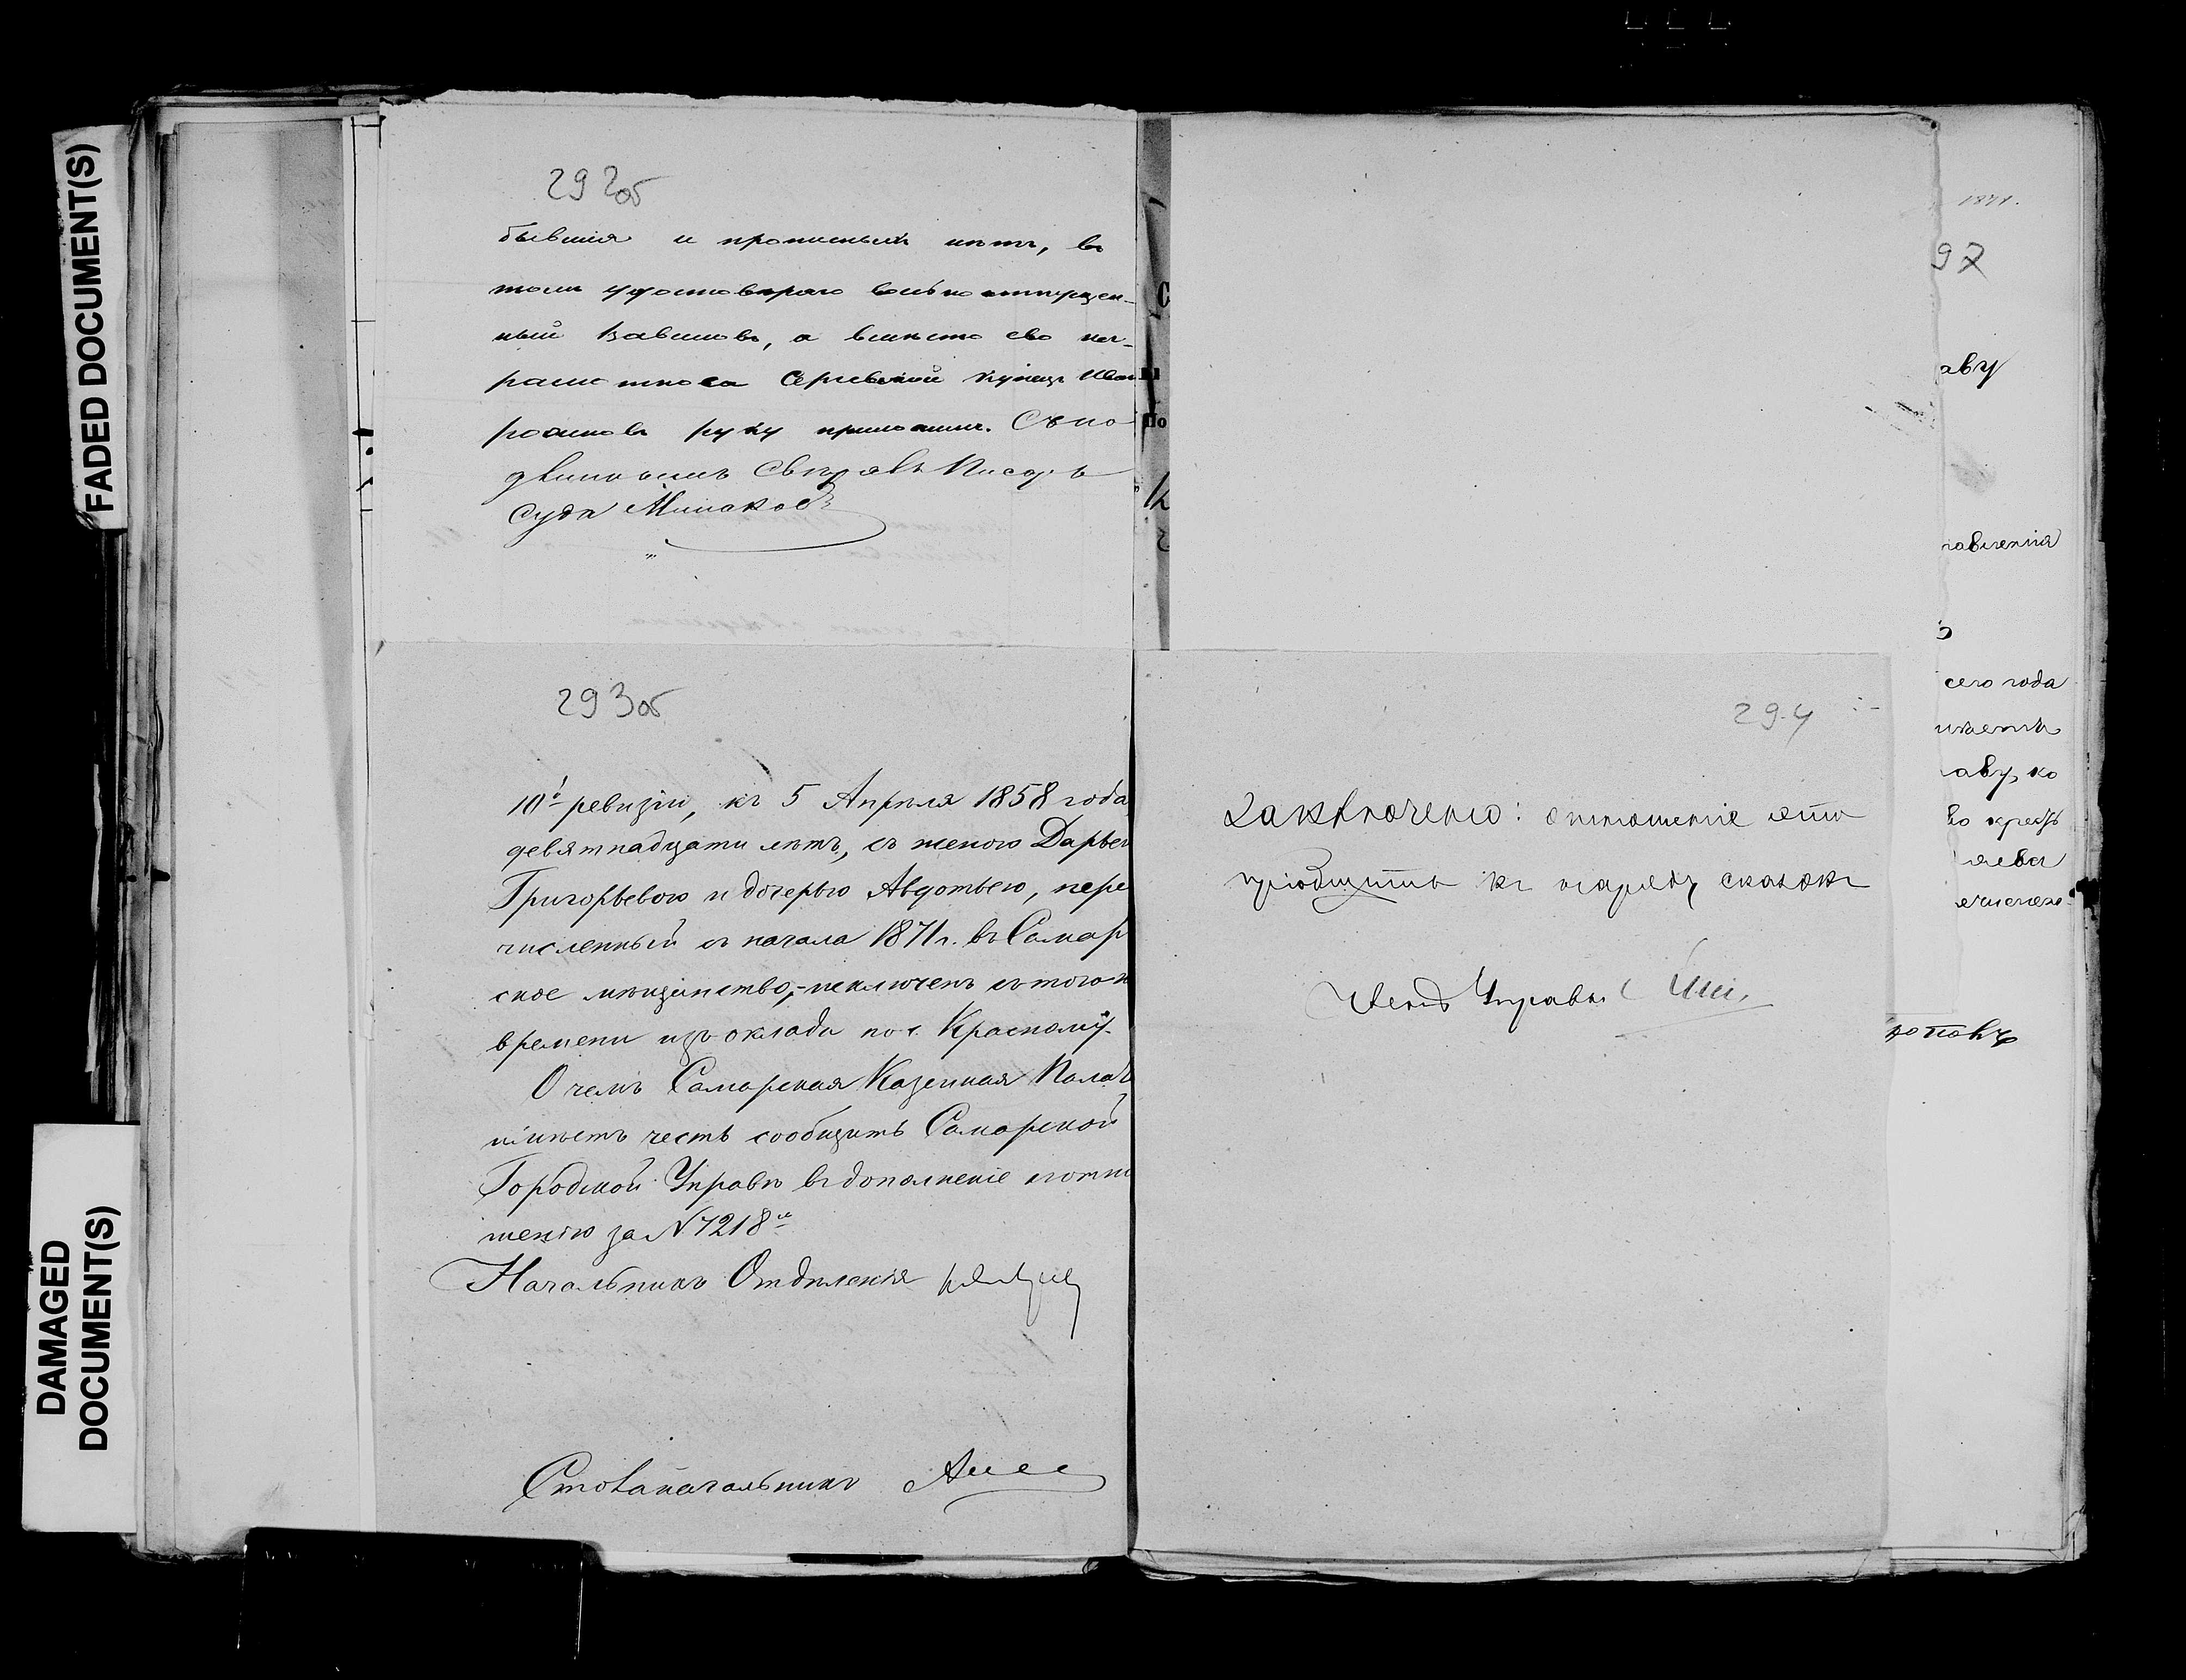 FADED DOCUMENT(S)
DAMAGED
DOCUMENT(S)
292об
бывшiя и прописныхъ нѣтъ, въ
томъ удостовѣряю вольноотпущен-
ный Вавиловъ, а вместо ево не-
купецъ Иван
руку приложилъ. Съ по
Свѣрялъ Писарь
Суда Минаковъ
293об
10й ревизiи, къ 5 Апрѣля 1858 года
девятнадцати лѣтъ, съ женою Дарьею
Григорьевою и дочерью Авдотьею, пере
численный съ начала 1871 г. въ Самар
ское мѣщанство,-исключенъ съ того ж
времени изъ оклада по с. Красному.
О чемъ Самарская Казенная Пала
имѣетъ честь сообщить Самарской
Городской Управѣ въ дополненiе к отно
шенiю за № 7218м
Начальникъ Отдѣленiя
Столаначальникъ
294
Заключено: отношенiе это
прiобщить къ наряду сказокъ
Членъ Управы
1871.
97
аву
равленiя
сего года
аву, ко